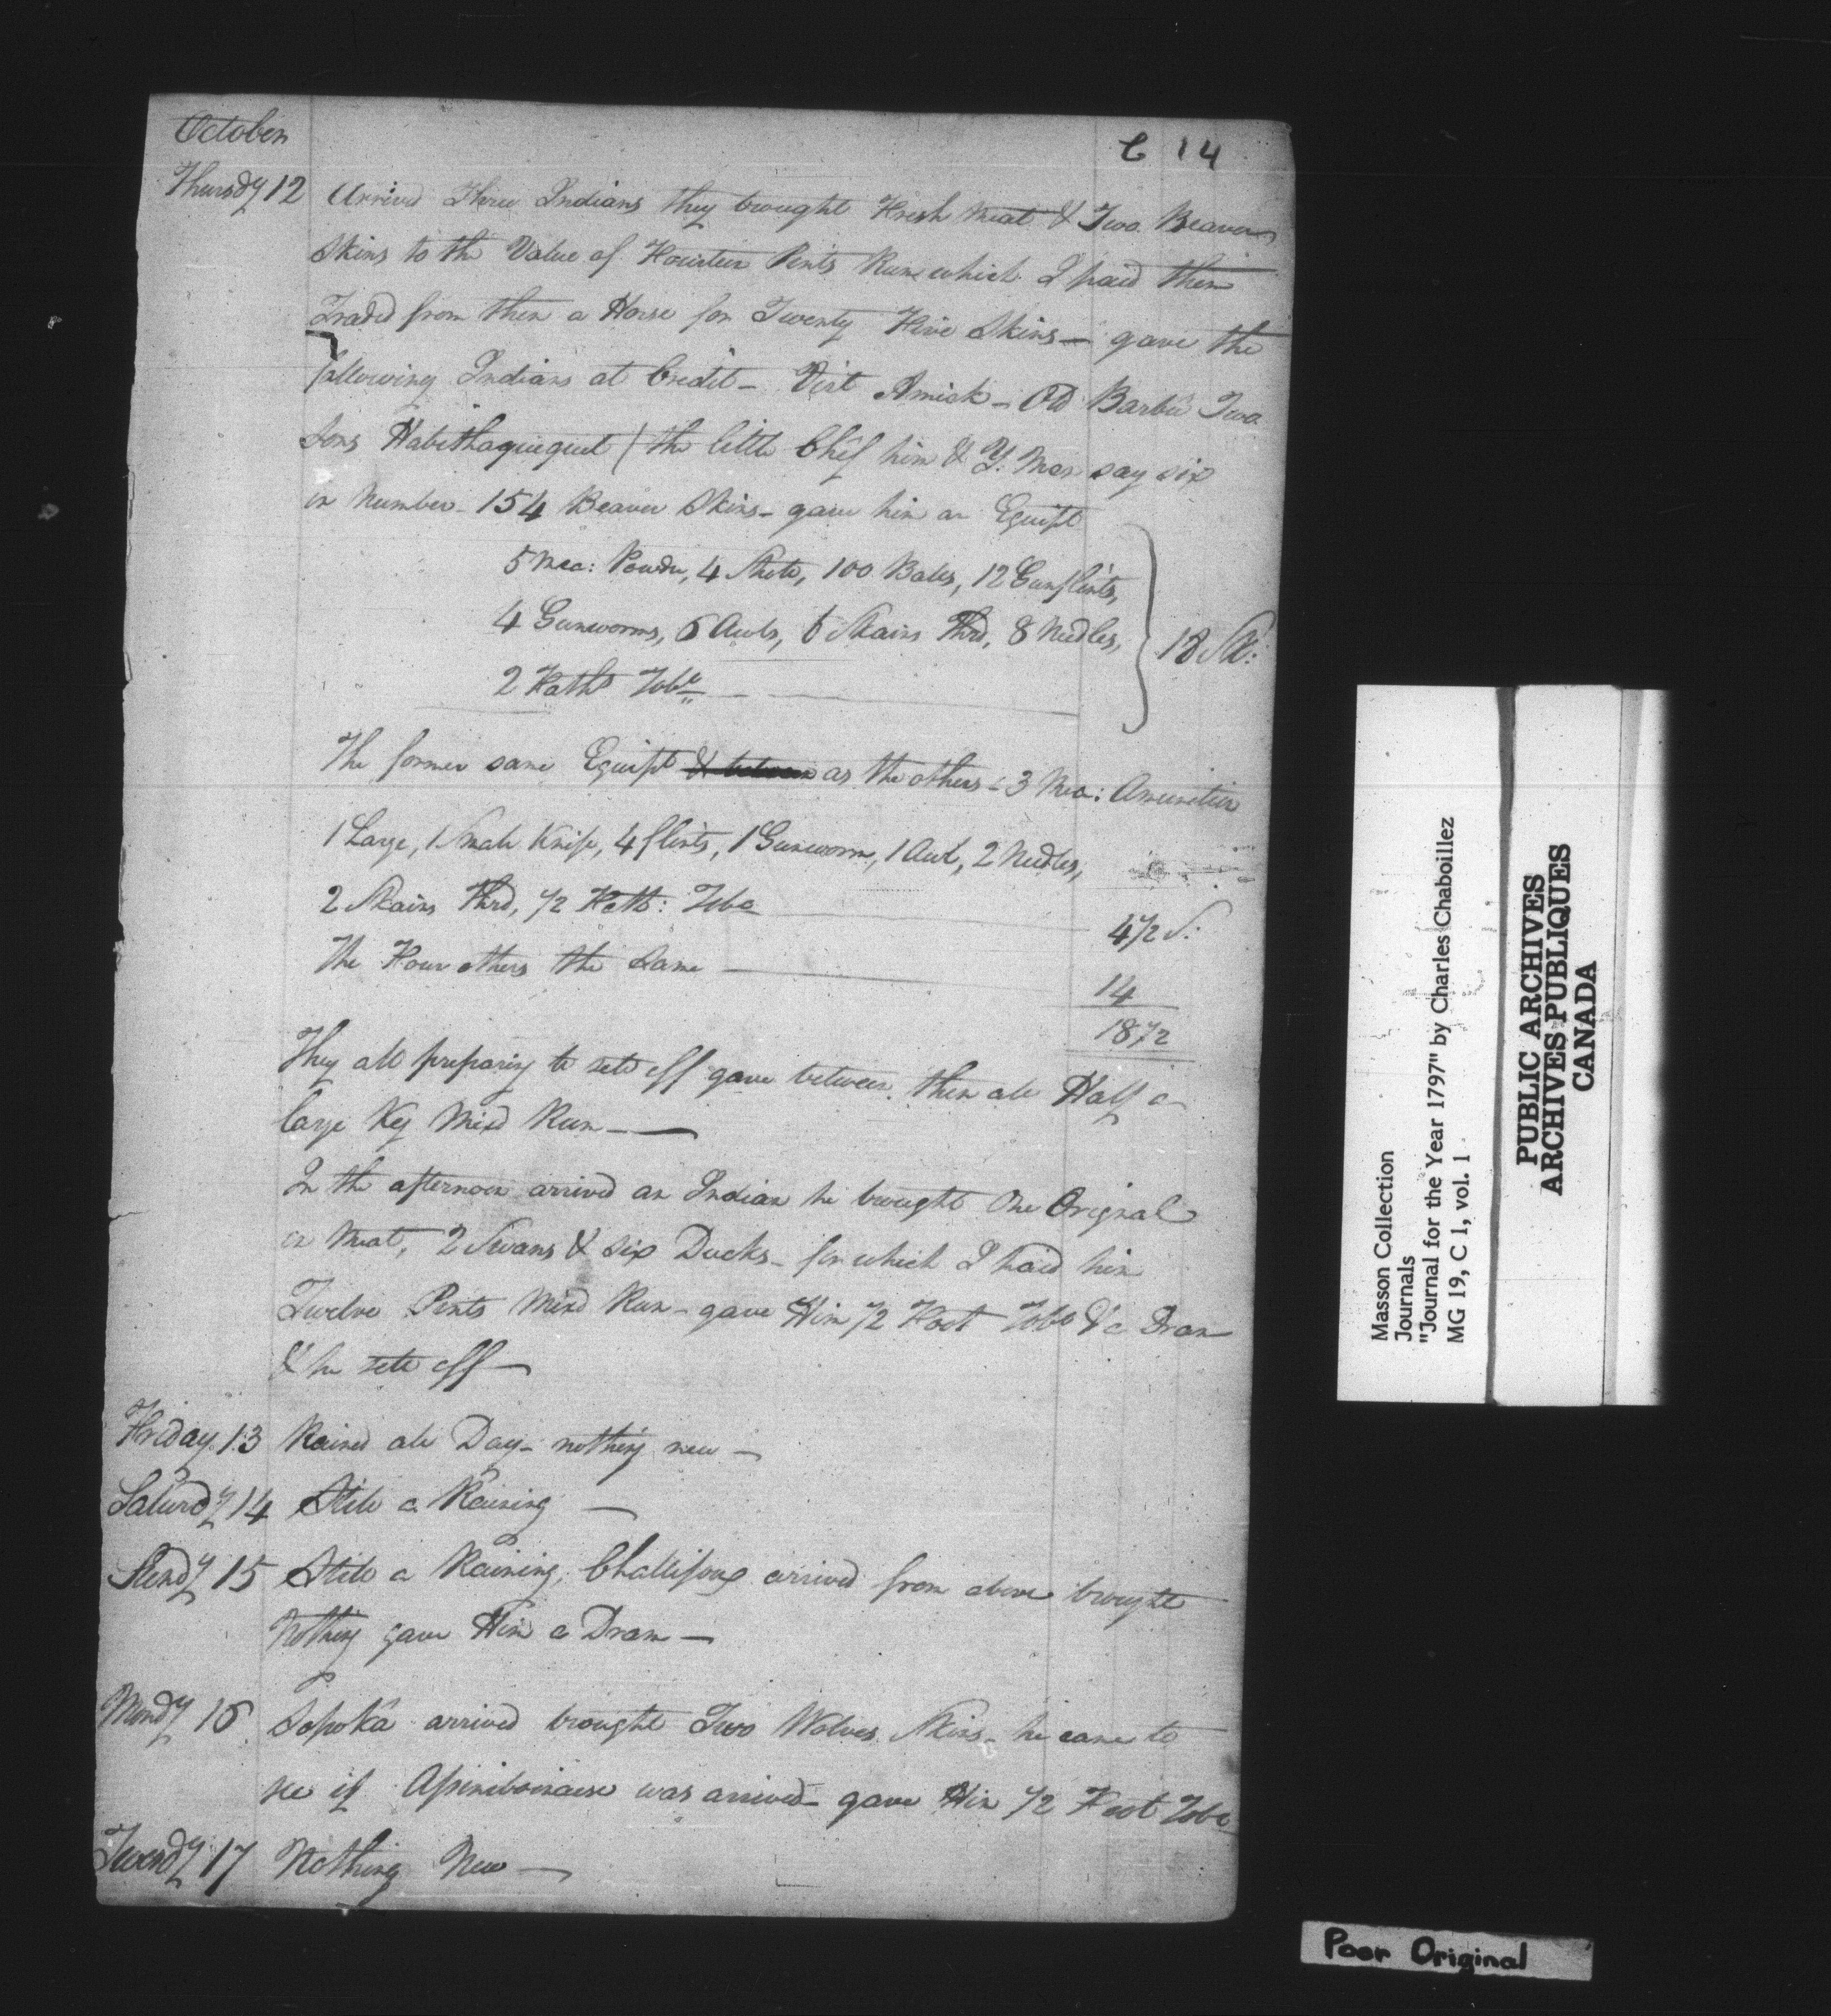 October
C 14
Thursdy 12 Arrived Three Indians they brought Fresh Meat & Two Beaver
Skins to the Value of Fourteen Pints Rum which I paid them
Traded from them a Horse for Twenty Five Skins — gave the
following Indians at Credit — Vizt Amick — Old Barbû Two
Sons / the little Chêf him & Y. Men say six
in Number — 154 Beaver Skins — gave him an Equipt
5 Mea: Powder, 4 Shott, 100 Balls, 12 Gunflints,
4 Gunworms, 6 Awls, 6 Skains Thrd, 8 Needles,
2 Faths Tobo
18 Sk:
The former same Equipt as the others — 3 Mea: Amunition
1 Large, 1 Small Knife, 4 flints, 1 Gunworm, 1 Awl, 2 Needles,
2 Skains Thrd, 1/2 Fath: Tobo
4 1/2 S:
The Four others the Same
14
18 1/2
They all preparing to sett off gave between them all Half a
large Keg Mixd Rum —
In the afternoon arrived an Indian he brought One Orignal
in Meat, 2 Swans & six Ducks — for which I paid him
Twelve Pints Mixd Rum — gave Him 1/2 Foot Tobo & a Dram
& he sett off —
Friday 13 Rained all Day — nothing new —
Saturdy 14 Still a Raining —
Sundy 15 Still a Raining, Challifoux arrived from above brought
Nothing gave Him a Dram —
Mondy 16 Sopoka arrived brought Two Wolves Skins — he came to
see if Assiniboinaise was arrived — gave Him 1/2 Foot Tobo
Tuesdy 17 Nothing New —
Masson Collection
Journals
"Journal for the Year 1797" by Charles Chaboillez
MG 19, C 1, vol. 1
PUBLIC ARCHIVES
ARCHIVES PUBLIQUES
CANADA
Poor Original